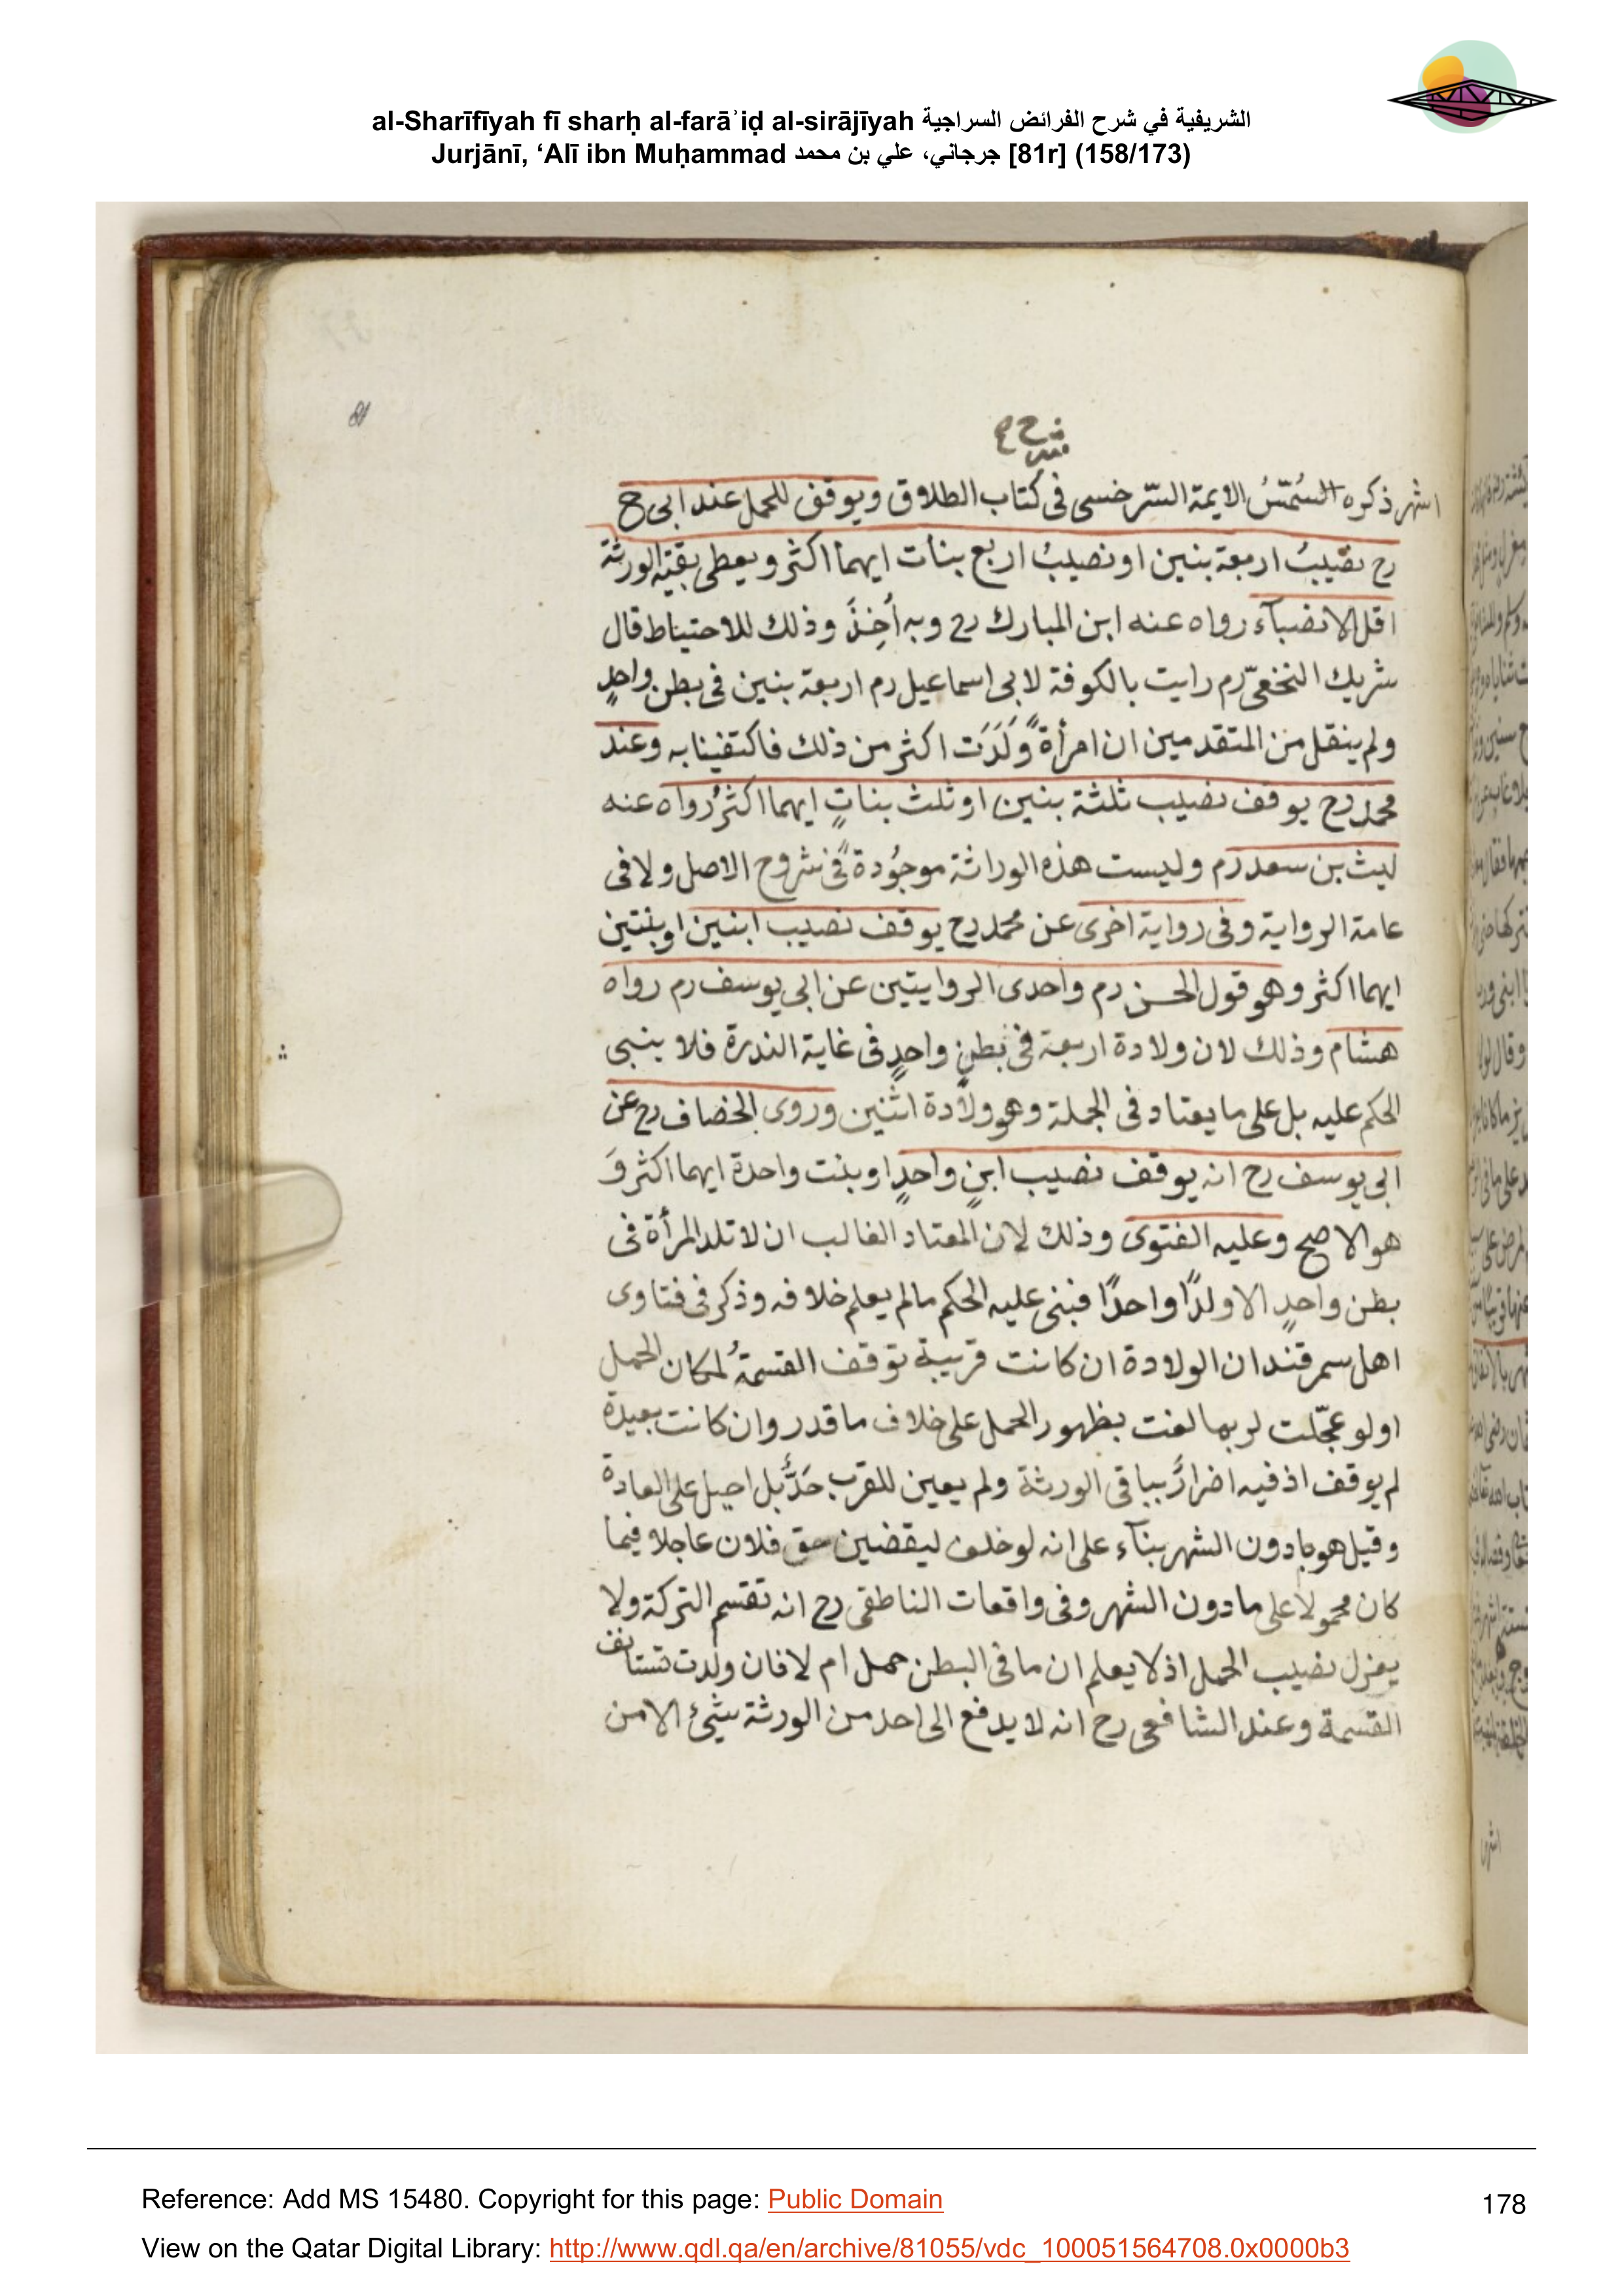 al-Sharīfīyah fī sharḥ al-farāʾiḍ al-sirājīyah الشريفية في شرح الفرائض السراجية
Jurjānī, ‘Alī ibn Muḥammad جرجاني، علي بن محمد [81r] (158/173)
81
شرح
اشهر ذكره السُمّسُ الايمة السّرخسى فى كتاب الطلاق ويوقف للحمل عند ابى ح
رح نصيبُ اربعة بنين او نصيبُ اربع بنات ايهما اكثر ويعطى بقية الورثة
اقل الانصبآء رواه عنه ابن المبارك رح وبه أخِذَ وذلك للاحتياط قال
شريك النخعىّ رم رايت بالكوفة لابى اسماعيل رم اربعة بنين فى بطن واحدٍ
ولم ينقل من المتقدمين ان امرأةً وَلَدَت اكثر من ذلك فاكتفينا به وعند
محمد رح يوقف نصيب ثلثة بنين او ثلث بناتٍ ايهما اكثرُ رواه عنه
ليث بن سعد رم وليست هذه الوراثة موجُودةً فى شروح الاصل ولا فى
عامة الرواية وفى رواية اخرى عن محمد رح يوقف نصيب ابنين او بنتين
ايهما اكثر وهو قول الحسن رم واحدى الروايتين عن ابى يوسف رم رواه
هشام وذلك لان ولادة اربعة فى بطنٍ واحدٍ فى غاية الندرة فلا ينبى
الحكم عليه بل على ما يعتاد فى الجملة وهو ولادة اثنين وروى الخصاف رح عن
ابى يوسف رح انه يوقف نصيب ابنٍ واحدٍ او بنت واحدة ايهما اكثر وَ
هو الاصح وعليه الفتوى وذلك لان المعتاد الغالب ان لا تلد المرأة فى
بطن واحدٍ الا ولدًا واحدًا فبنى عليه الحكم ما لم يعلم خلافه وذكر فى فتاوى
اهل سمرقند ان الولادة ان كانت قريبة توقف القسمةُ لمكان الحمل
اولو عجّلت لربما لغت بظهور الحمل على خلاف ما قدر وان كانت بعيدة
لم يوقف اذ فيه اضرارً بباقى الورثة ولم يعين للقرب حَدًّ بل احيل على العادة
وقيل هو بادون الشهر بنآء على انه لو خلف ليقضين حق فلان عاجلا فيما
كان محمولا على مادون الشهر وفى واقعات الناطقى رح انه تقسم التركة ولا
يعزل نصيب الحمل اذ لا يعلم ان ما فى البطن حمل ام لا فان ولدت تستانف
القسمة وعند الشافعى رح انه لا يدفع الى احد من الورثة شيئ الا من
Reference: Add MS 15480. Copyright for this page: Public Domain
178
View on the Qatar Digital Library: http://www.qdl.qa/en/archive/81055/vdc_100051564708.0x0000b3